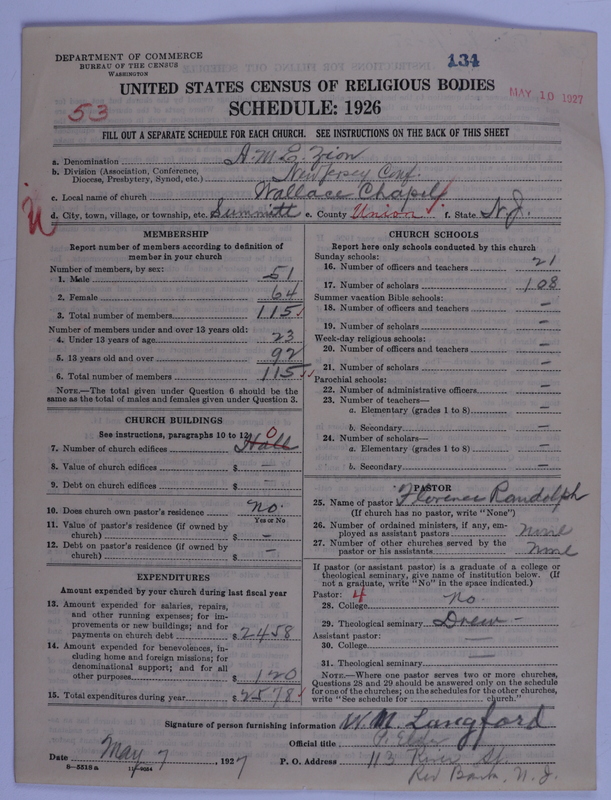 DEPARTMENT OF COMMERCE
BUREAU OF THE CENSUS
WASHINGTON
134
UNITED STATES CENSUS OF RELIGIOUS BODIES
MAY 10 1927
53
SCHEDULE: 1926
FILL OUT A SEPARATE SCHEDULE FOR EACH CHURCH. SEE INSTRUCTIONS ON THE BACK OF THIS SHEET
a. Denomination A. M. E. Zion
b. Division (Association, Conference, Diocese, Presbytery, Synod, etc.) New Jersey Conf.
c. Local name of church Wallace Chapel
d. City, town, village, or township, etc. Summitt e. County Union f. State N.J.
MEMBERSHIP
Report number of members according to definition of member in your church
Number of members, by sex:
1. Male 51
2. Female 64
3. Total number of members 115
Number of members under and over 13 years old:
4. Under 13 years of age 23
5. 13 years old and over 92
6. Total number of members 115
NOTE.—The total given under Question 6 should be the same as the total of males and females given under Question 3.
CHURCH BUILDINGS
See instructions, paragraphs 10 to 12
7. Number of church edifices Hall 0
8. Value of church edifices $ —
9. Debt on church edifices $ —
10. Does church own pastor's residence No.
Yes or No
11. Value of pastor's residence (if owned by church) $ —
12. Debt on pastor's residence (if owned by church) $ —
EXPENDITURES
Amount expended by your church during last fiscal year
13. Amount expended for salaries, repairs, and other running expenses; for improvements or new buildings; and for payments on church debt $ 2458
14. Amount expended for benevolences, including home and foreign missions; for denominational support; and for all other purposes $ 120
15. Total expenditures during year $ 2578
CHURCH SCHOOLS
Report here only schools conducted by this church
Sunday schools:
16. Number of officers and teachers 21
17. Number of scholars 108
Summer vacation Bible schools:
18. Number of officers and teachers —
19. Number of scholars —
Week-day religious schools:
20. Number of officers and teachers —
21. Number of scholars —
Parochial schools:
22. Number of administrative officers —
23. Number of teachers—
a. Elementary (grades 1 to 8) —
b. Secondary —
24. Number of scholars—
a. Elementary (grades 1 to 8) —
b. Secondary —
PASTOR
25. Name of pastor Florence Randolph
(If church has no pastor, write "None")
26. Number of ordained ministers, if any, employed as assistant pastors None
27. Number of other churches served by the pastor or his assistants None
If pastor (or assistant pastor) is a graduate of a college or theological seminary, give name of institution below. (If not a graduate, write "No" in the space indicated.)
Pastor: 4
28. College No
29. Theological seminary Drew —
Assistant pastor:
30. College —
31. Theological seminary —
NOTE.—Where one pastor serves two or more churches, Questions 28 and 29 should be answered only on the schedule for one of the churches; on the schedules for the other churches, write "See schedule for church."
Signature of person furnishing information W. M. Langford
Official title P. Elder
Date May 7, 1927 P. O. Address 113 River St.
8-5518a
Red Bank, N. J.